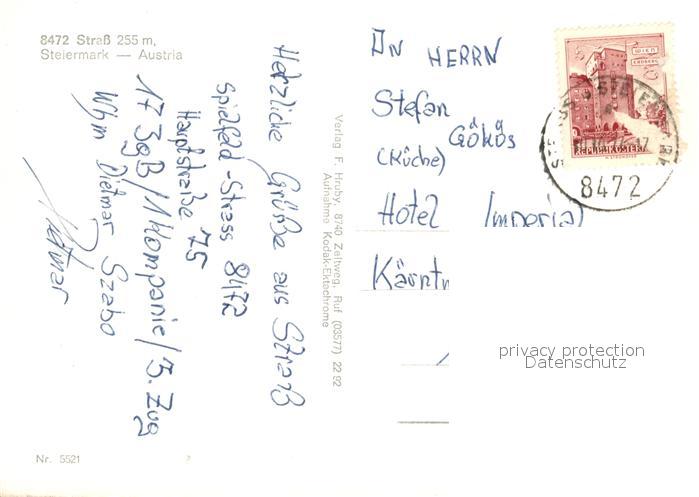 8472 Straß 255 m,
Steiermark — Austria
Herzliche Grüße aus Straß
Spielfeld-Strass 8472
Hauptstraße 75
17 JgB/1 Kompanie/3. Zug
Whm Dietmar Szabo
Dietmar
Nr. 5521
Verlag F. Hruby, 8740 Zeltweg, Ruf (03577) 22 92
Aufnahme Kodak-Ektachrome
AN HERRN
Stefan
Gökös
(Küche)
Hotel Imperial
Kärntn
WIEN
ERDBERG
REPUBLIK ÖSTERREICH
8472
privacy protection
Datenschutz